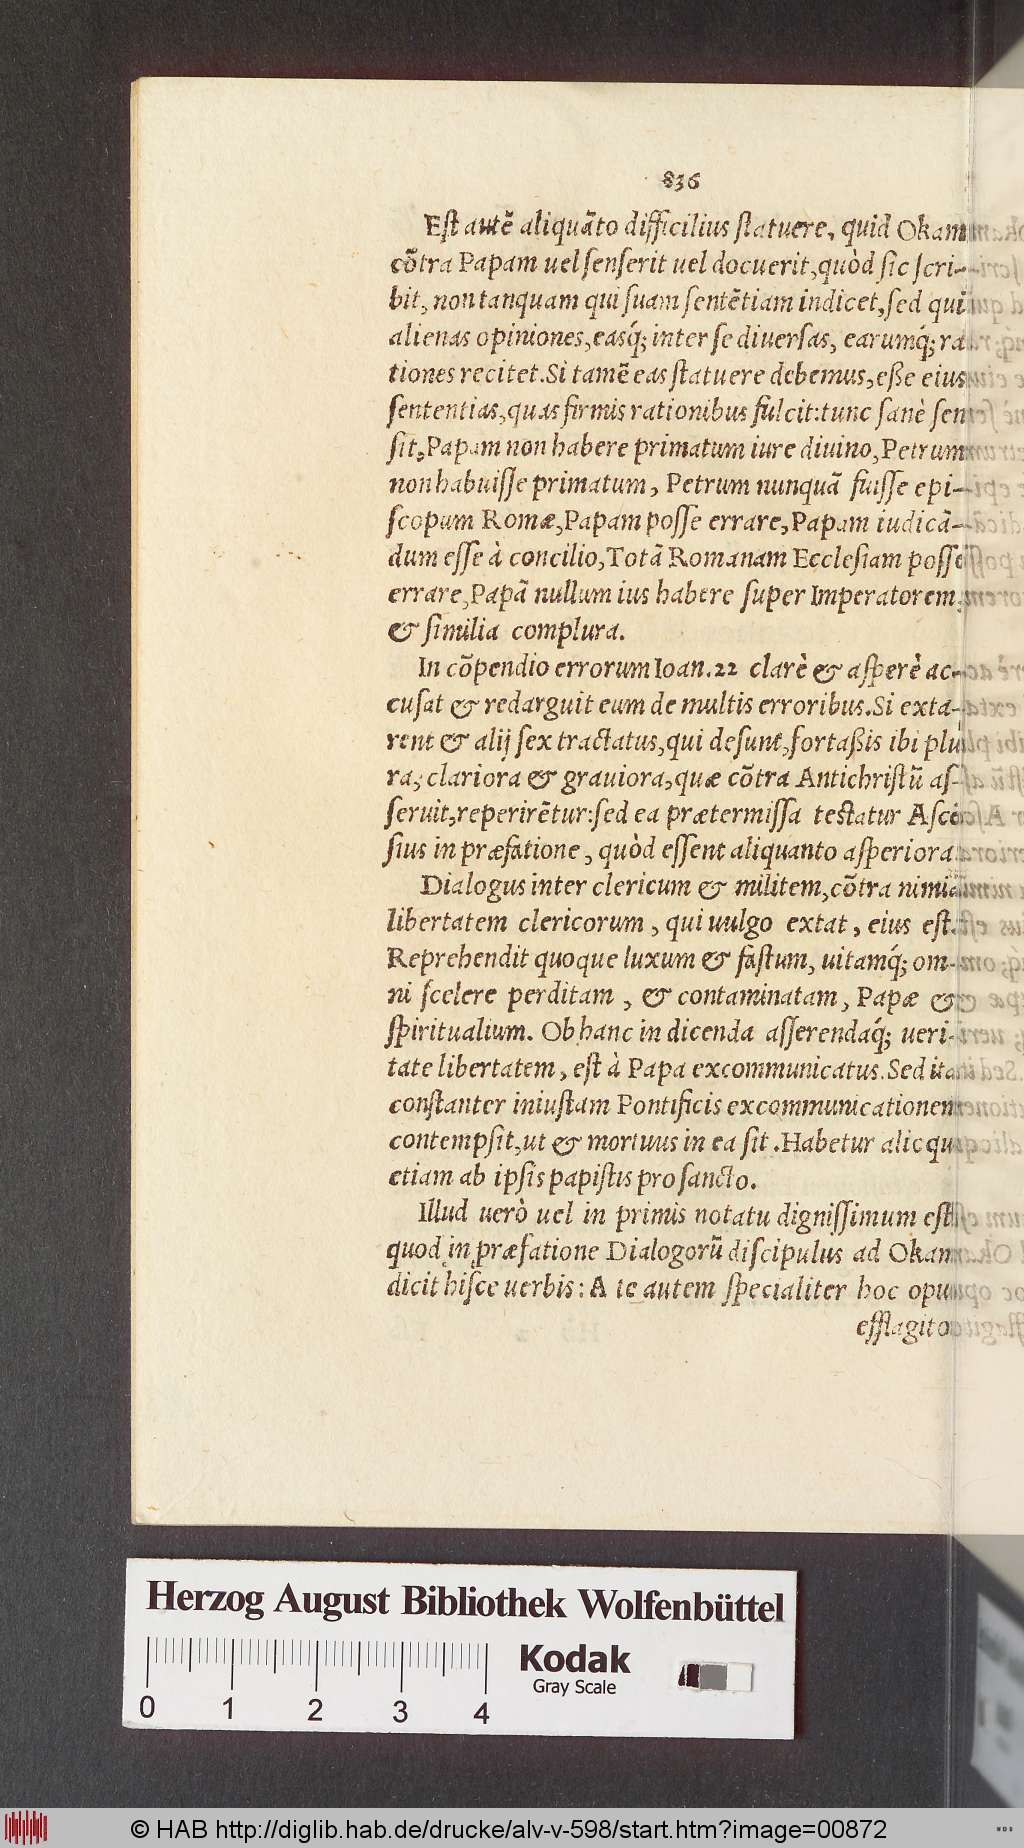 836
Est autē aliquāto difficilius statuere, quid Okam
cōtra Papam uel senserit uel docuerit, quòd sic scri-
bit, non tanquam qui suam sentētiam indicet, sed qui
alienas opiniones, easq́; inter se diuersas, earumq́; ra
tiones recitet. Si tamē eas statuere debemus, eße eius
sententias, quas firmis rationibus fulcit: tunc sanè sen
sit, Papam non habere primatum iure diuino, Petrum
non habuisse primatum, Petrum nunquā fuisse epi-
scopum Romæ, Papam posse errare, Papam iudicā-
dum esse à concilio, Totā Romanam Ecclesiam posse
errare, Papā nullum ius habere super Imperatorem,
& similia complura.
In cōpendio errorum Ioan. 22 clarè & asperè ac-
cusat & redarguit eum de multis erroribus. Si exta-
rent & alij sex tractatus, qui desunt, fortaßis ibi plu
ra, clariora & grauiora, quæ cōtra Antichristū as-
seruit, reperirētur: sed ea prætermissa testatur Ascē
sius in præfatione, quòd essent aliquanto asperiora.
Dialogus inter clericum & militem, cōtra nimiā
libertatem clericorum, qui uulgo extat, eius est.
Reprehendit quoque luxum & fastum, uitamq́; om-
ni scelere perditam, & contaminatam, Papæ &
spiritualium. Ob hanc in dicenda asserendaq́; ueri-
tate libertatem, est à Papa excommunicatus. Sed ita
constanter iniustam Pontificis excommunicationem
contempsit, ut & mortuus in ea sit. Habetur alicqui
etiam ab ipsis papistis pro sancto.
Illud uerò uel in primis notatu dignissimum est
quod in præfatione Dialogorū discipulus ad Okam
dicit hisce uerbis: A te autem specialiter hoc opus
efflagito
Herzog August Bibliothek Wolfenbüttel
Kodak
Gray Scale
0 1 2 3 4
© HAB http://diglib.hab.de/drucke/alv-v-598/start.htm?image=00872